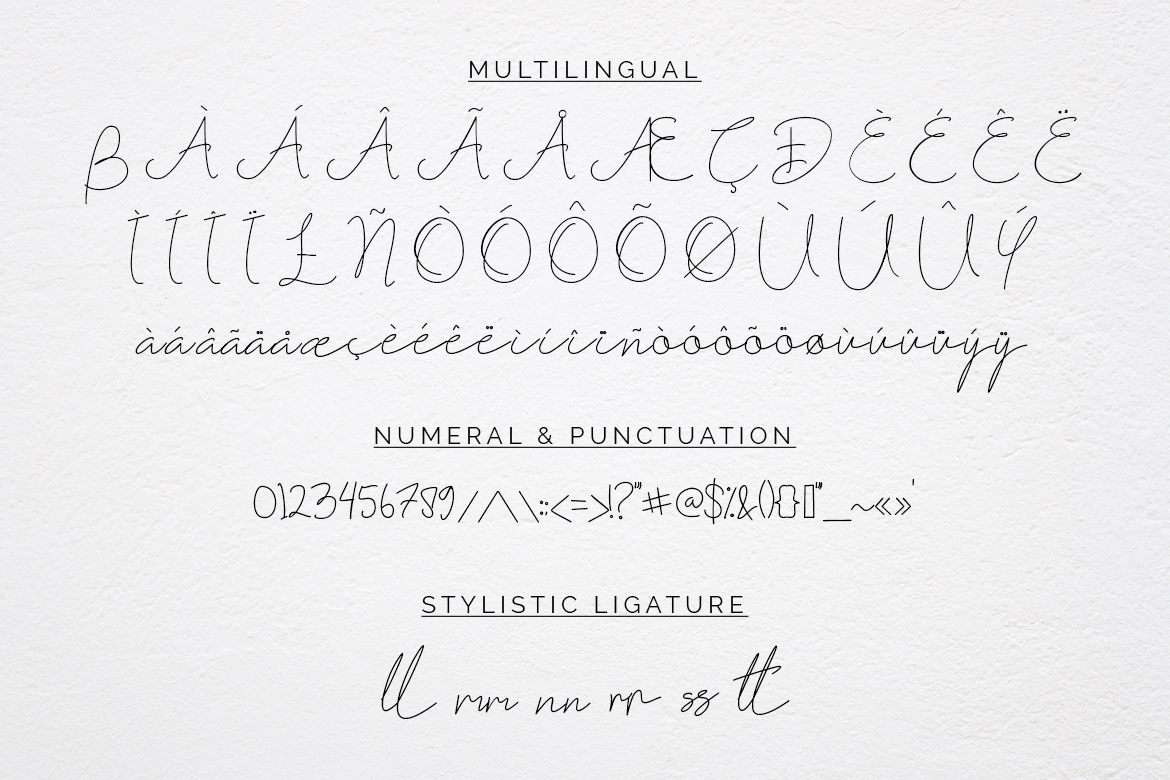 MULTILINGUAL
ß À Á Â Ã Å Æ Ç Ð È É Ê Ë
Ì Í Î Ï £ Ñ Ò Ó Ô Õ Ø Ù Ú Û Ý
àáâãäåæçèéêëìíîïñòóôõöøùúûüýÿ
NUMERAL & PUNCTUATION
0123456789/^\:;<=>!?"#@$%&(){}[]"_~«»'
STYLISTIC LIGATURE
ll mm nn rr ss tt